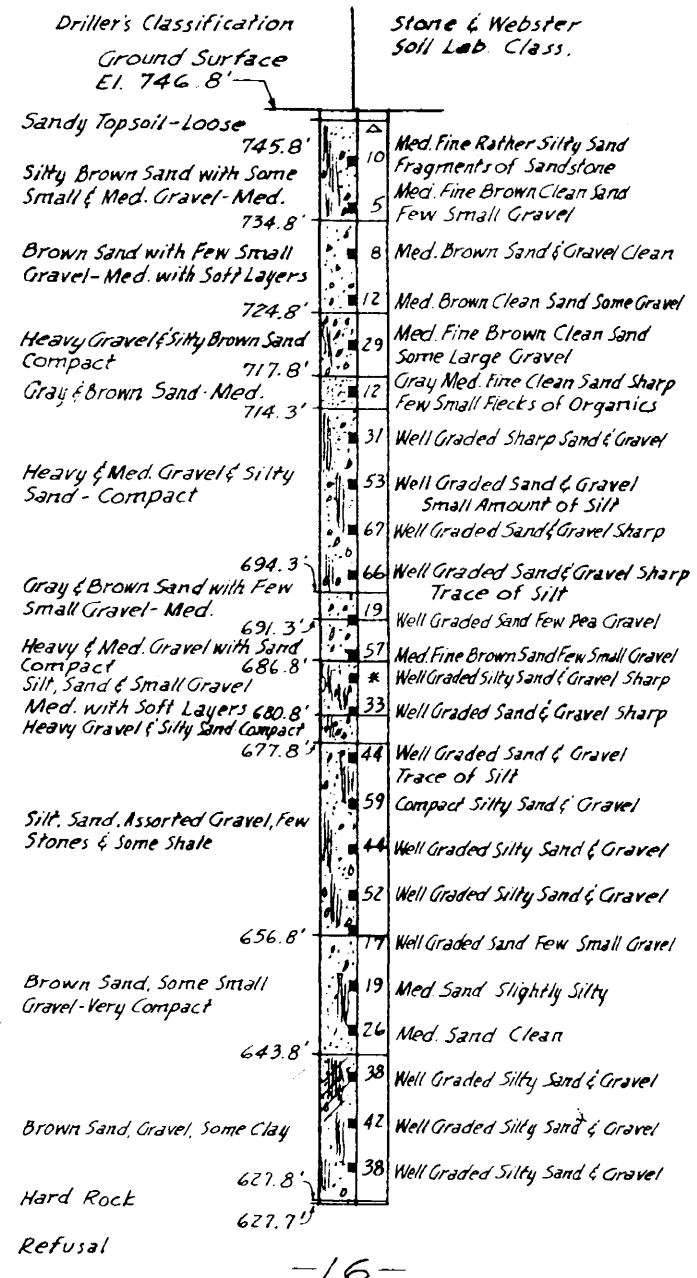 Driller's Classification
Stone & Webster
Soil Lab. Class.
Ground Surface
El. 746.8'
Sandy Topsoil-Loose
745.8'
Silty Brown Sand with Some
Small & Med. Gravel-Med.
734.8'
Brown Sand with Few Small
Gravel-Med. with Soft Layers
724.8'
Heavy Gravel & Silty Brown Sand
Compact
717.8'
Gray & Brown Sand-Med.
714.3'
Heavy & Med. Gravel & Silty
Sand - Compact
694.3'
Gray & Brown Sand with Few
Small Gravel-Med.
691.3'
Heavy & Med. Gravel with Sand
Compact
686.8'
Silt, Sand & Small Gravel
Med. with Soft Layers 680.8'
Heavy Gravel & Silty Sand Compact
677.8'
Silt, Sand, Assorted Gravel, Few
Stones & Some Shale
656.8'
Brown Sand, Some Small
Gravel-Very Compact
643.8'
Brown Sand, Gravel, Some Clay
627.8'
Hard Rock
627.7'
Refusal
△
10 Med. Fine Rather Silty Sand
Fragments of Sandstone
5 Med. Fine Brown Clean Sand
Few Small Gravel
8 Med. Brown Sand & Gravel Clean
12 Med. Brown Clean Sand Some Gravel
29 Med. Fine Brown Clean Sand
Some Large Gravel
12 Gray Med. Fine Clean Sand Sharp
Few Small Flecks of Organics
31 Well Graded Sharp Sand & Gravel
53 Well Graded Sand & Gravel
Small Amount of Silt
67 Well Graded Sand & Gravel Sharp
66 Well Graded Sand & Gravel Sharp
Trace of Silt
19 Well Graded Sand Few Pea Gravel
57 Med. Fine Brown Sand Few Small Gravel
* Well Graded Silty Sand & Gravel Sharp
33 Well Graded Sand & Gravel Sharp
44 Well Graded Sand & Gravel
Trace of Silt
59 Compact Silty Sand & Gravel
44 Well Graded Silty Sand & Gravel
52 Well Graded Silty Sand & Gravel
17 Well Graded Sand Few Small Gravel
19 Med. Sand Slightly Silty
26 Med. Sand Clean
38 Well Graded Silty Sand & Gravel
42 Well Graded Silty Sand & Gravel
38 Well Graded Silty Sand & Gravel
-16-